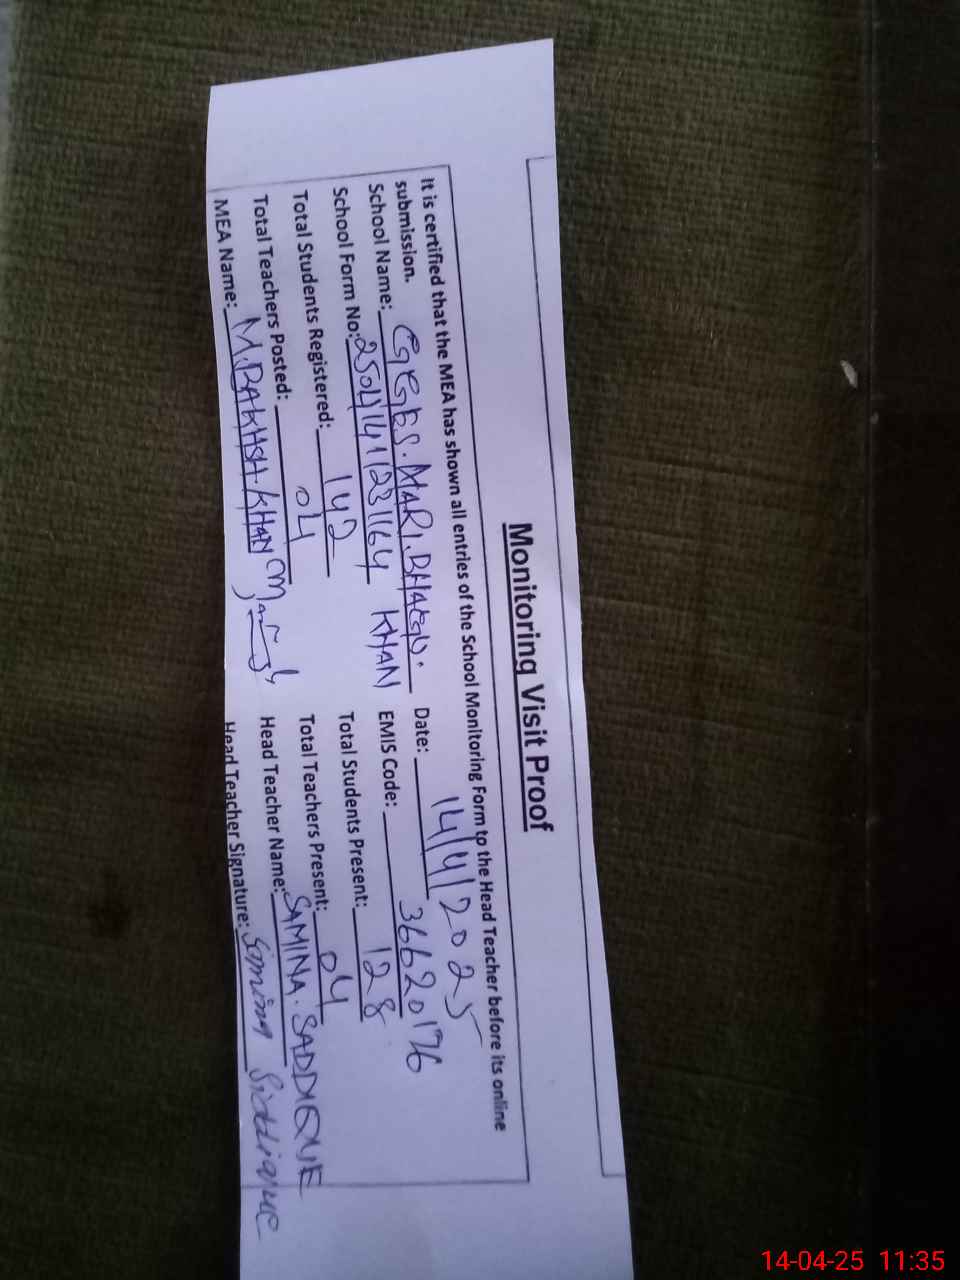 Monitoring Visit Proof
It is certified that the MEA has shown all entries of the School Monitoring Form to the Head Teacher before its online
submission.
School Name: GGES. MARI. BHAGO. KHAN Date: 14/4/2025
School Form No: 2504141231164 EMIS Code: 36620176
Total Students Registered: 142 Total Students Present: 128
Total Teachers Posted: 04 Total Teachers Present: 04
MEA Name: M. BAKHSH. KHAN Head Teacher Name: SAMINA. SADDIQUE
Head Teacher Signature: Samina Siddique
14-04-25 11:35